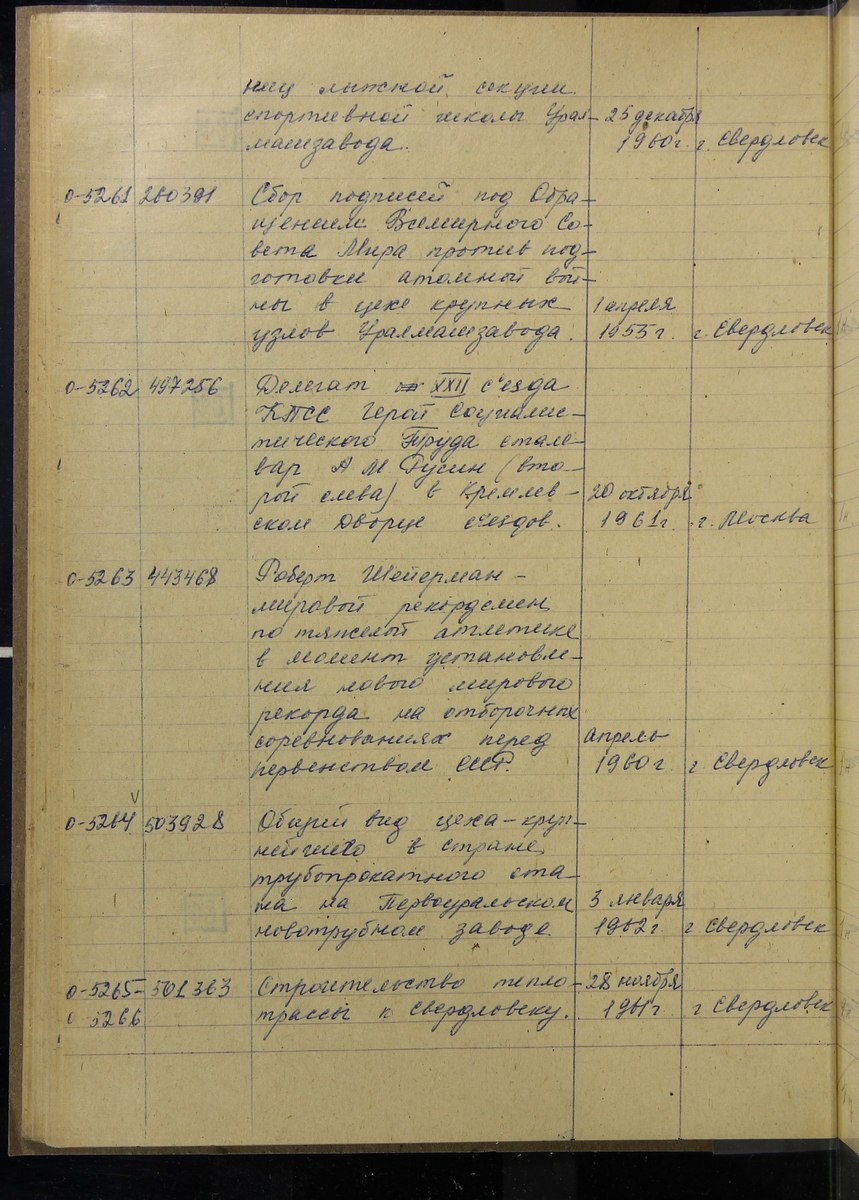 ниц лыжной секции
спортивной школы Урал- 25 декабря
машзавода. 1960г. г. Свердловск
0-5261 280391 Сбор подписей под Обра-
щением Всемирного Со-
вета Мира против под-
готовки атомной вой-
ны в цехе крупных 1 апреля
узлов Уралмашзавода. 1955г. г. Свердловск
0-5262 497256 Делегат XXII съезда
КПСС Герой Социалис-
тического Труда стале-
вар А М Гусин (вто-
рой слева) в Кремлев- 20 октября
ском Дворце съездов. 1961г. г. Москва
0-5263 443468 Роберт Шейерман-
мировой рекордсмен
по тяжелой атлетике
в момент установле-
ния нового мирового
рекорда на отборочных
соревнованиях перед апрель
первенством СССР. 1960г. г Свердловск
0-5264 503928 Общий вид цеха-круп-
нейшего в стране
трубопрокатного ста-
на на Первоуральском 3 января
новотрубном заводе 1962г г Свердловск
0-5265- 501363 Строительство тепло- 28 ноября
0-5266 трассы к Свердловску. 1961г г Свердловск